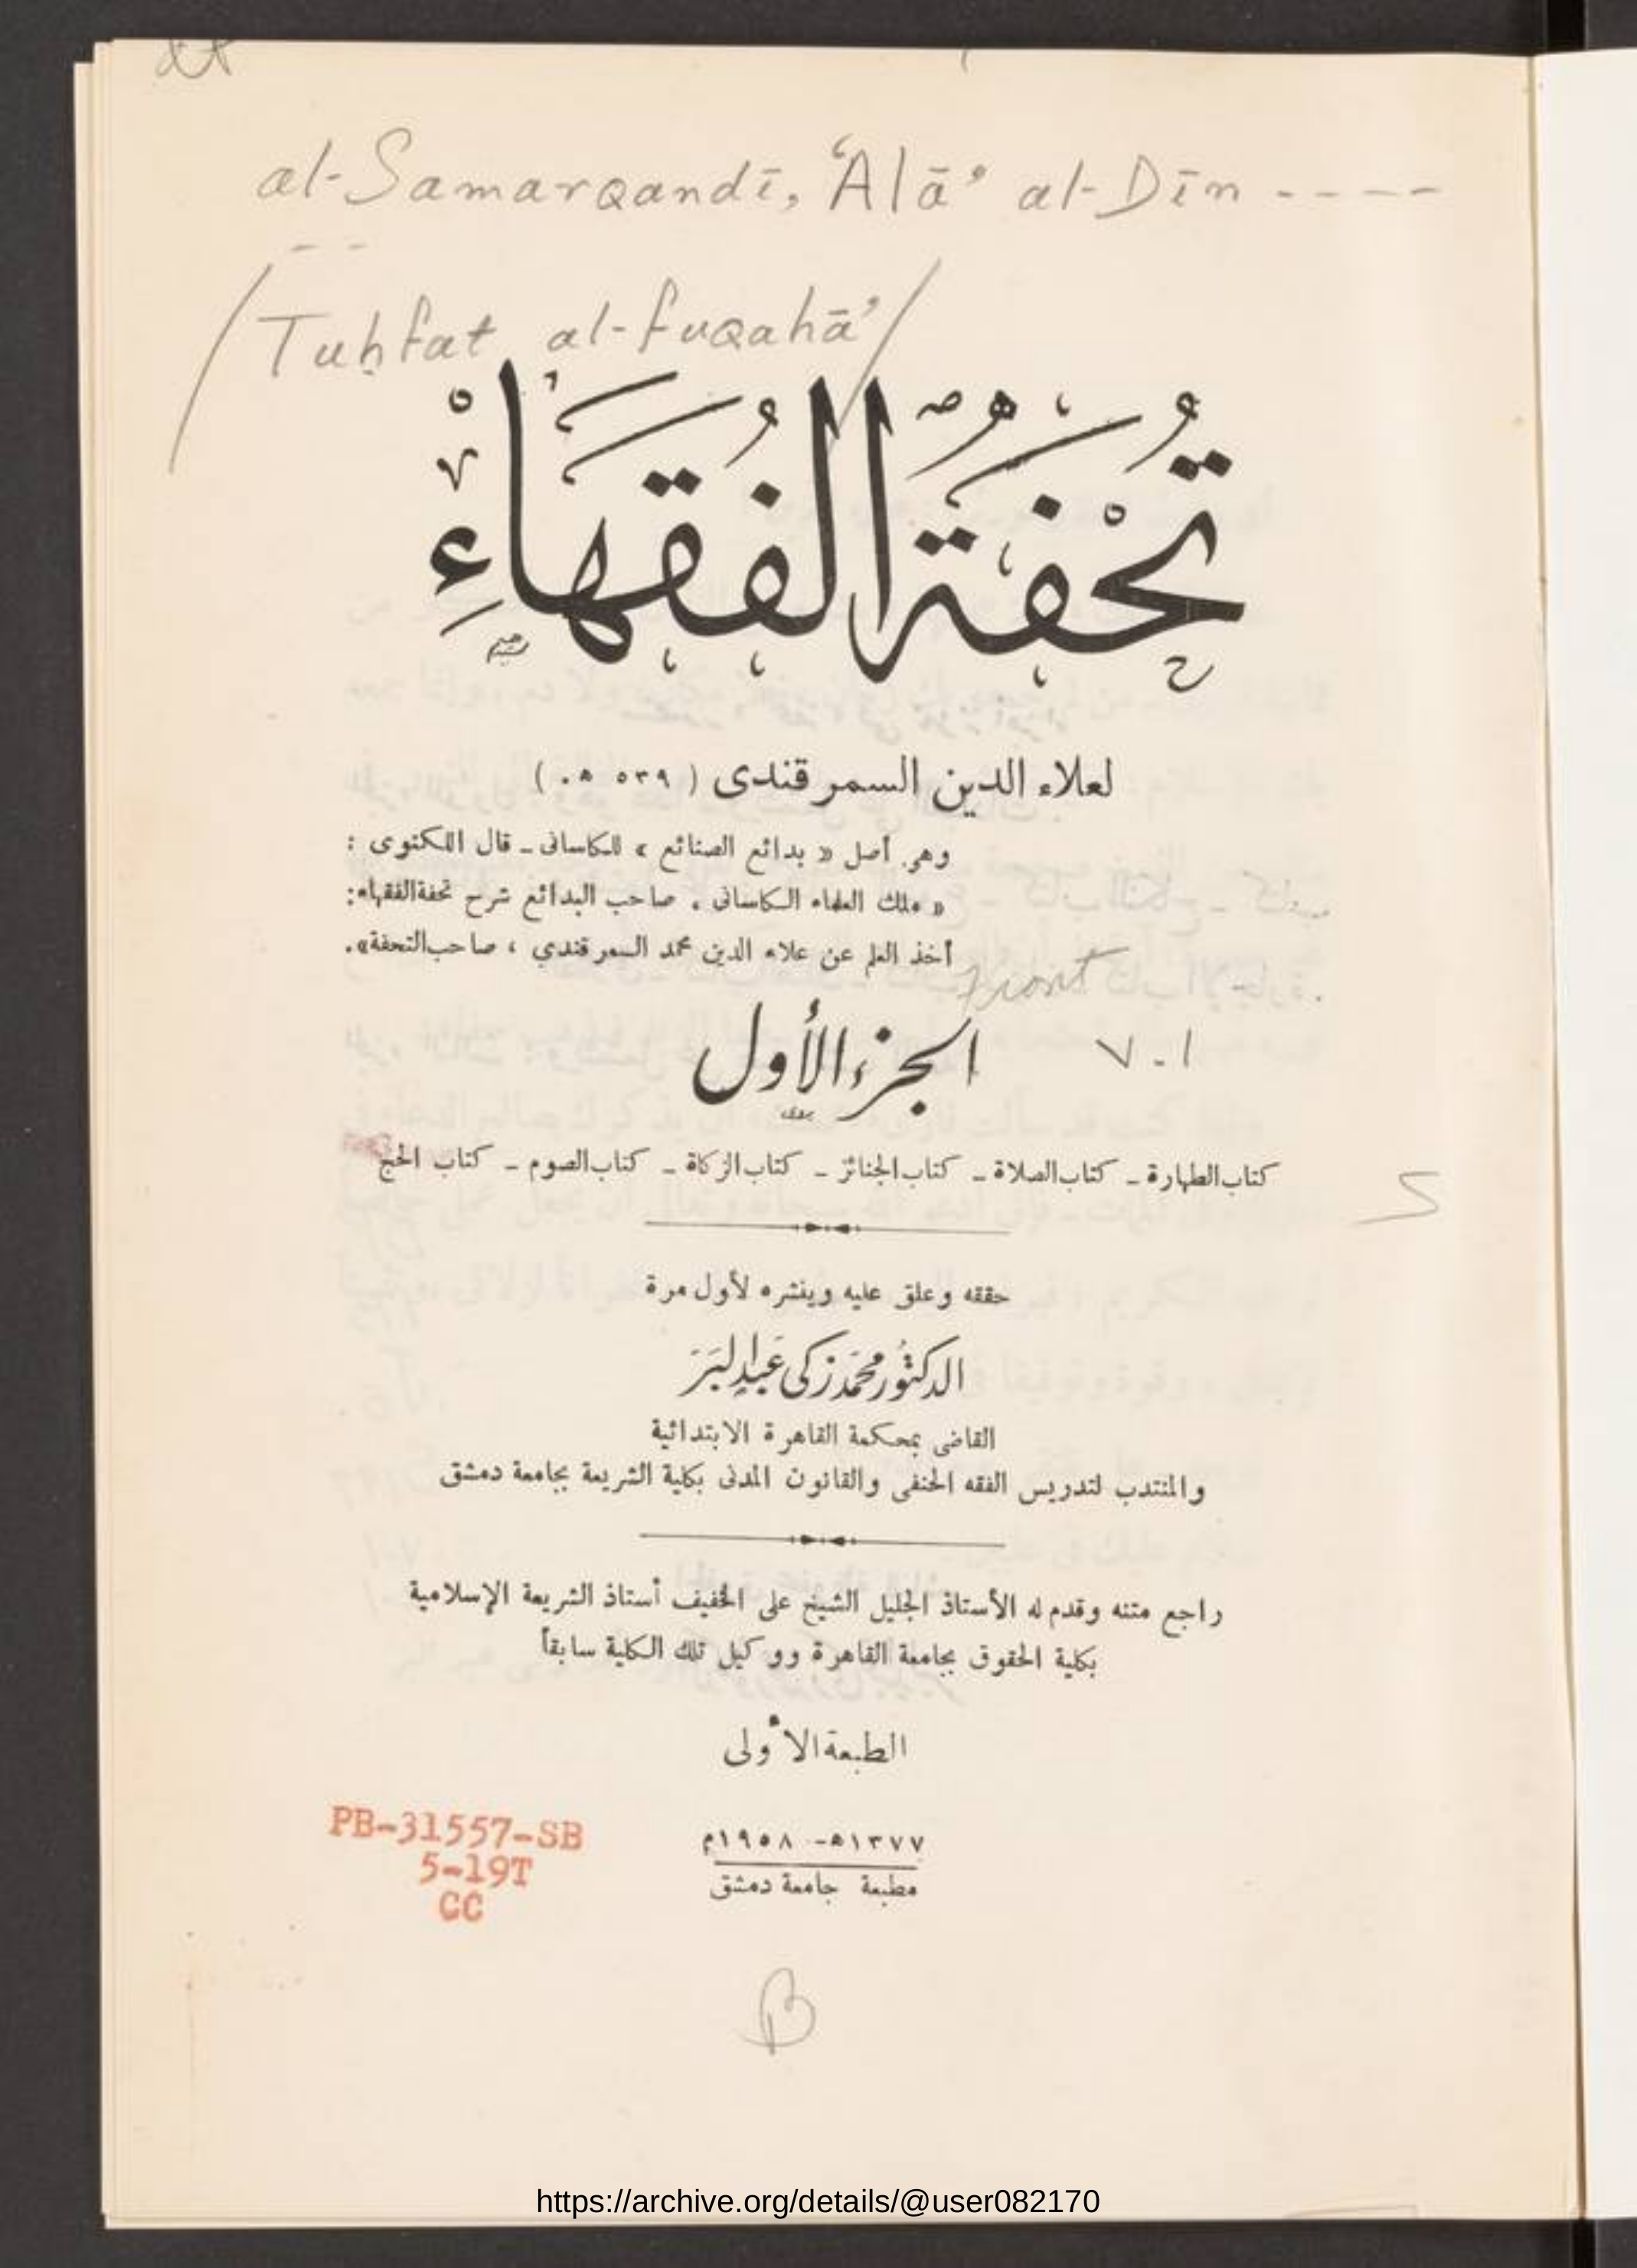 al-Samarqandī, ʿAlāʾ al-Dīn ----
--
/Tuḥfat al-fuqahāʾ/
تُحْفَةُ الفُقَهَاءْ
لعلاء الدين السمرقندى ( ٥٣٩ هـ . )
وهى أصل « بدائع الصنائع » للكاسانى ـ قال اللكنوى :
« ملك العلماء الكاسانى ، صاحب البدائع شرح تحفة الفقهاء:
أخذ العلم عن علاء الدين محمد السمرقندي ، صاحب التحفة».
Front
الجزء الأول
١ - ٧
كتاب الطهارة ـ كتاب الصلاة ـ كتاب الجنائز ـ كتاب الزكاة ـ كتاب الصوم ـ كتاب الحج
حققه وعلق عليه وينشره لأول مرة
الدكتور محمد زكى عبد البر
القاضى بمحكمة القاهرة الابتدائية
والمنتدب لتدريس الفقه الحنفى والقانون المدنى بكلية الشريعة بجامعة دمشق
راجع متنه وقدم له الأستاذ الجليل الشيخ على الخفيف أستاذ الشريعة الإسلامية
بكلية الحقوق بجامعة القاهرة ووكيل تلك الكلية سابقاً
الطبعة الأولى
١٣٧٧هـ - ١٩٥٨م
مطبعة جامعة دمشق
PB-31557-SB
5-19T
CC
B
https://archive.org/details/@user082170